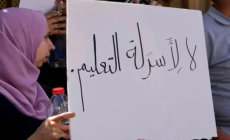 لا لِأَسرلة التعليم.